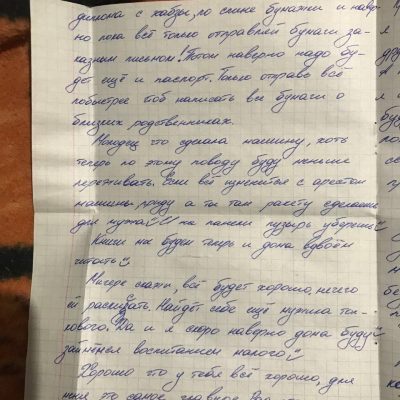 диплома с хабзы, по спине бумажки и навер-
но пока всё только отправляй бумаги за-
казным письмом! Потом наверно надо бу-
дет ещё и паспорт. Только отправь всё
побыстрее чтоб написать все бумаги о
близких родственниках.
Молодец что сделала машину, хоть
теперь по этому поводу буду меньше
переживать. Если всё с арестом
машины, а ты там ракету сделаешь
для мужа на панели пузырь уберешь
Книги мы будем теперь и дома вдвоём
читать
скажи, всё будет хорошо, нечего
ей раскисать. Найдёт себе ещё мужика тол-
кового. Да и я скоро наверно дома буду
займёмся воспитанием малого
Хорошо что у тебя всё хорошо, для
меня это самое главное.